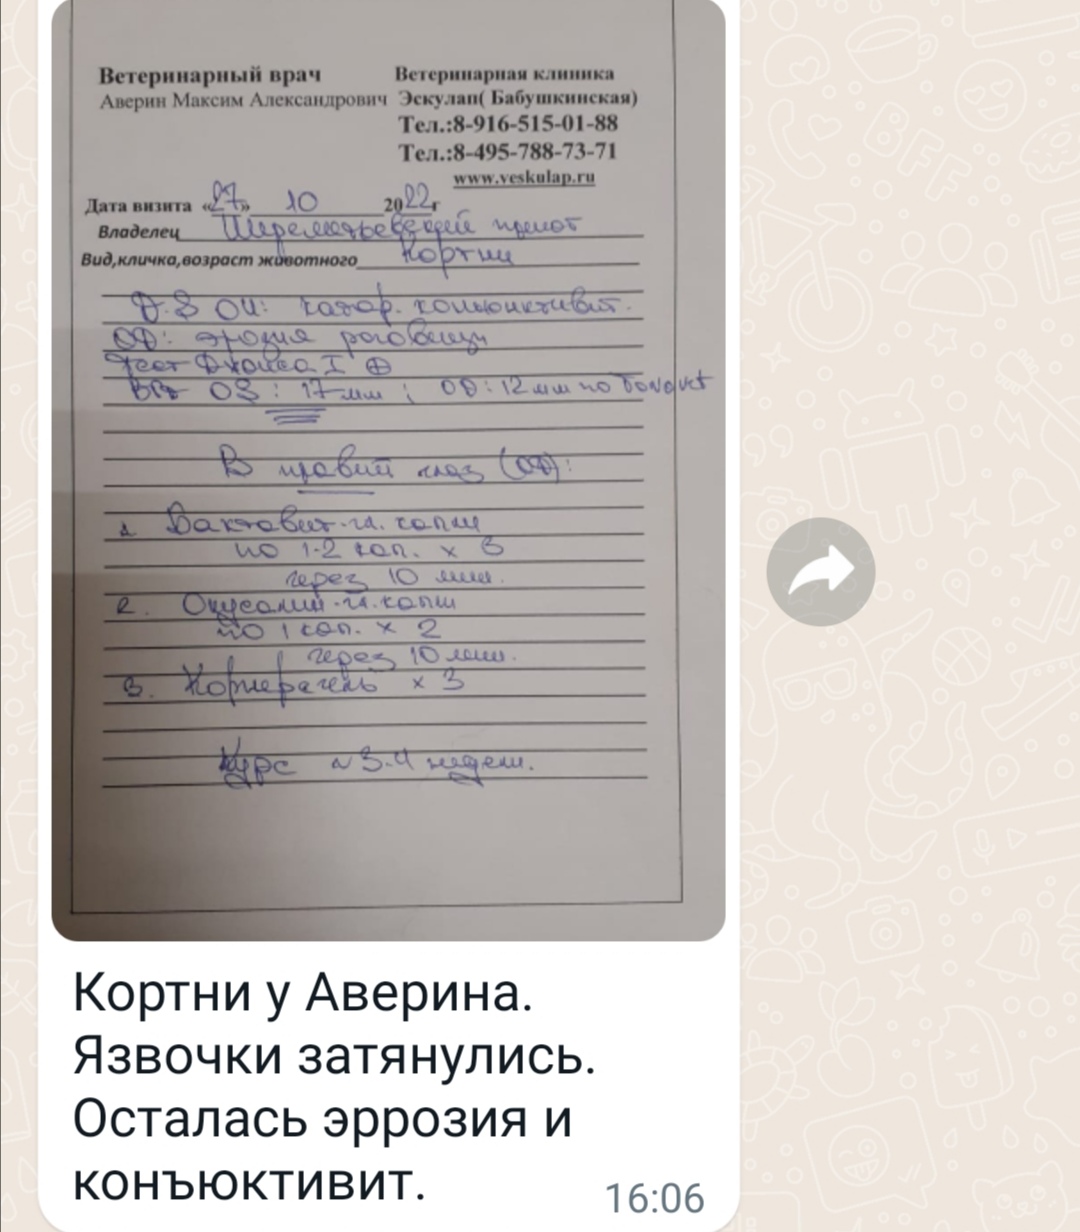 Ветеринарный врач
Аверин Максим Александрович
Ветеринарная клиника
Эскулап( Бабушкинская)
Тел.:8-916-515-01-88
Тел.:8-495-788-73-71
www.veskulap.ru
Дата визита «27» 10 2022г
Владелец Шереметьевский приют
Вид,кличка,возраст животного Кортни
D.S OU: катар. конъюнктивит.
OD: эрозия роговицы
Тест Джонса I ⊕
OS: 17 мм ; OD: 12 мм по
В правый глаз (OD):
1. Бактавит-гл. капли
по 1-2 кап. x 3
через 10 мин.
2. Окусалин-гл. капли
по 1 кап. x 2
через 10 мин.
3. Корнерегель x 3
Курс ~ 3-4 недели.
Кортни у Аверина.
Язвочки затянулись.
Осталась эррозия и
конъюктивит.
16:06